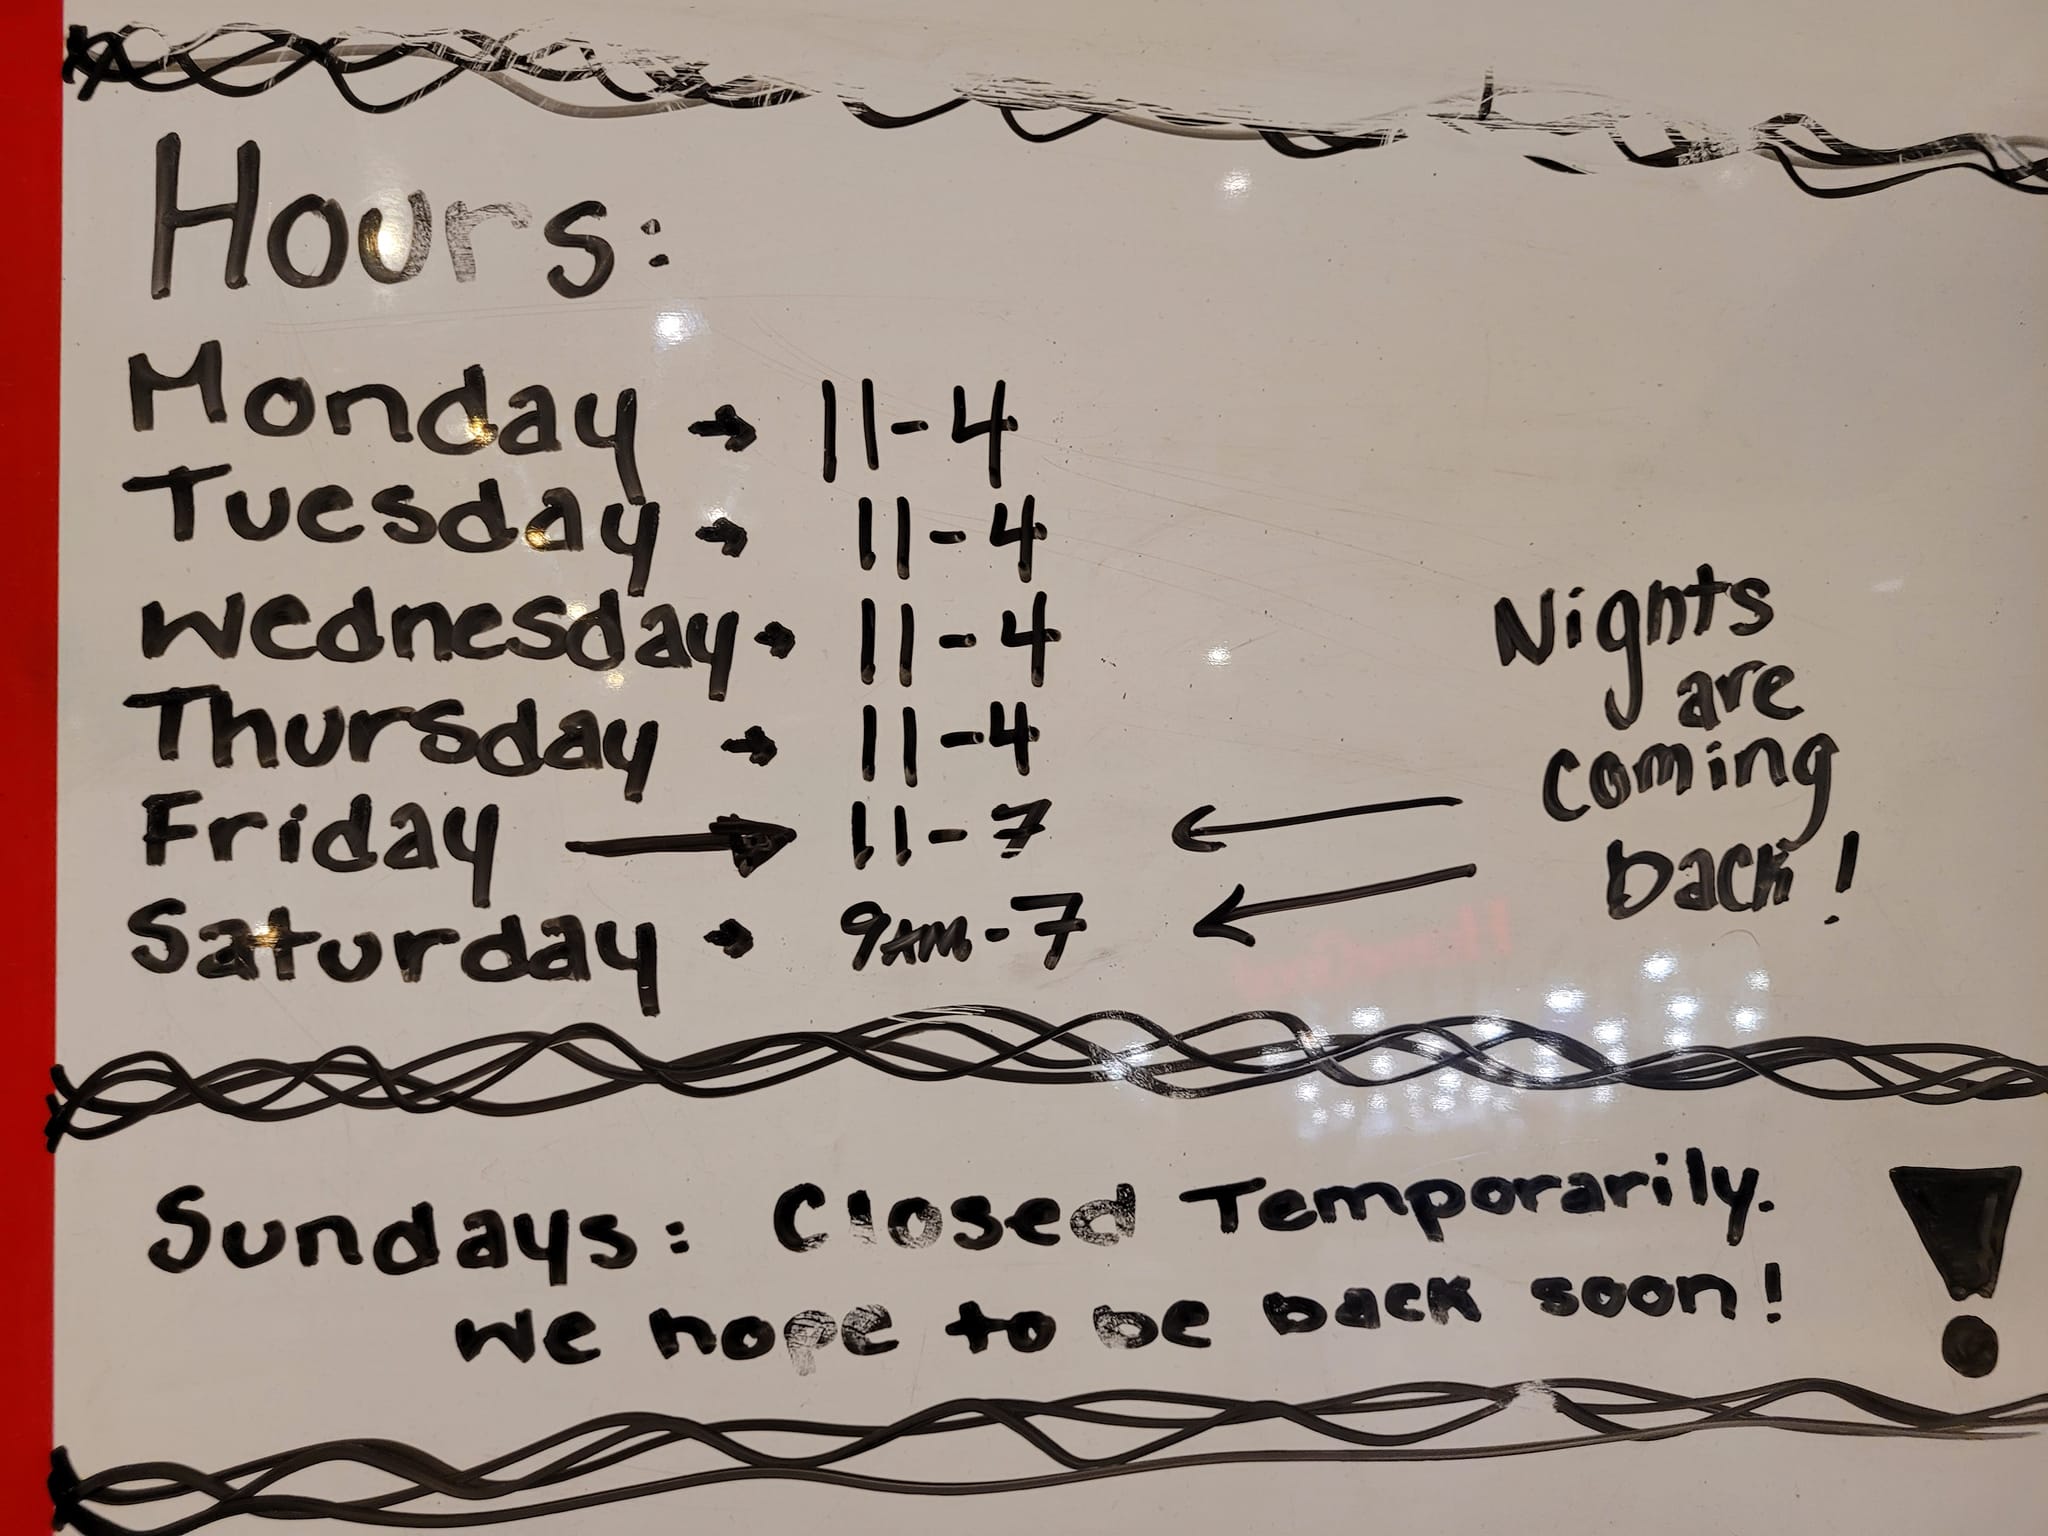 Hours:
Monday → 11-4
Tuesday → 11-4
Wednesday → 11-4
Thursday → 11-4
Friday → 11-7
Saturday → 9AM-7
Nights
are
coming
back!
Sundays: Closed Temporarily.
We hope to be back soon!
!